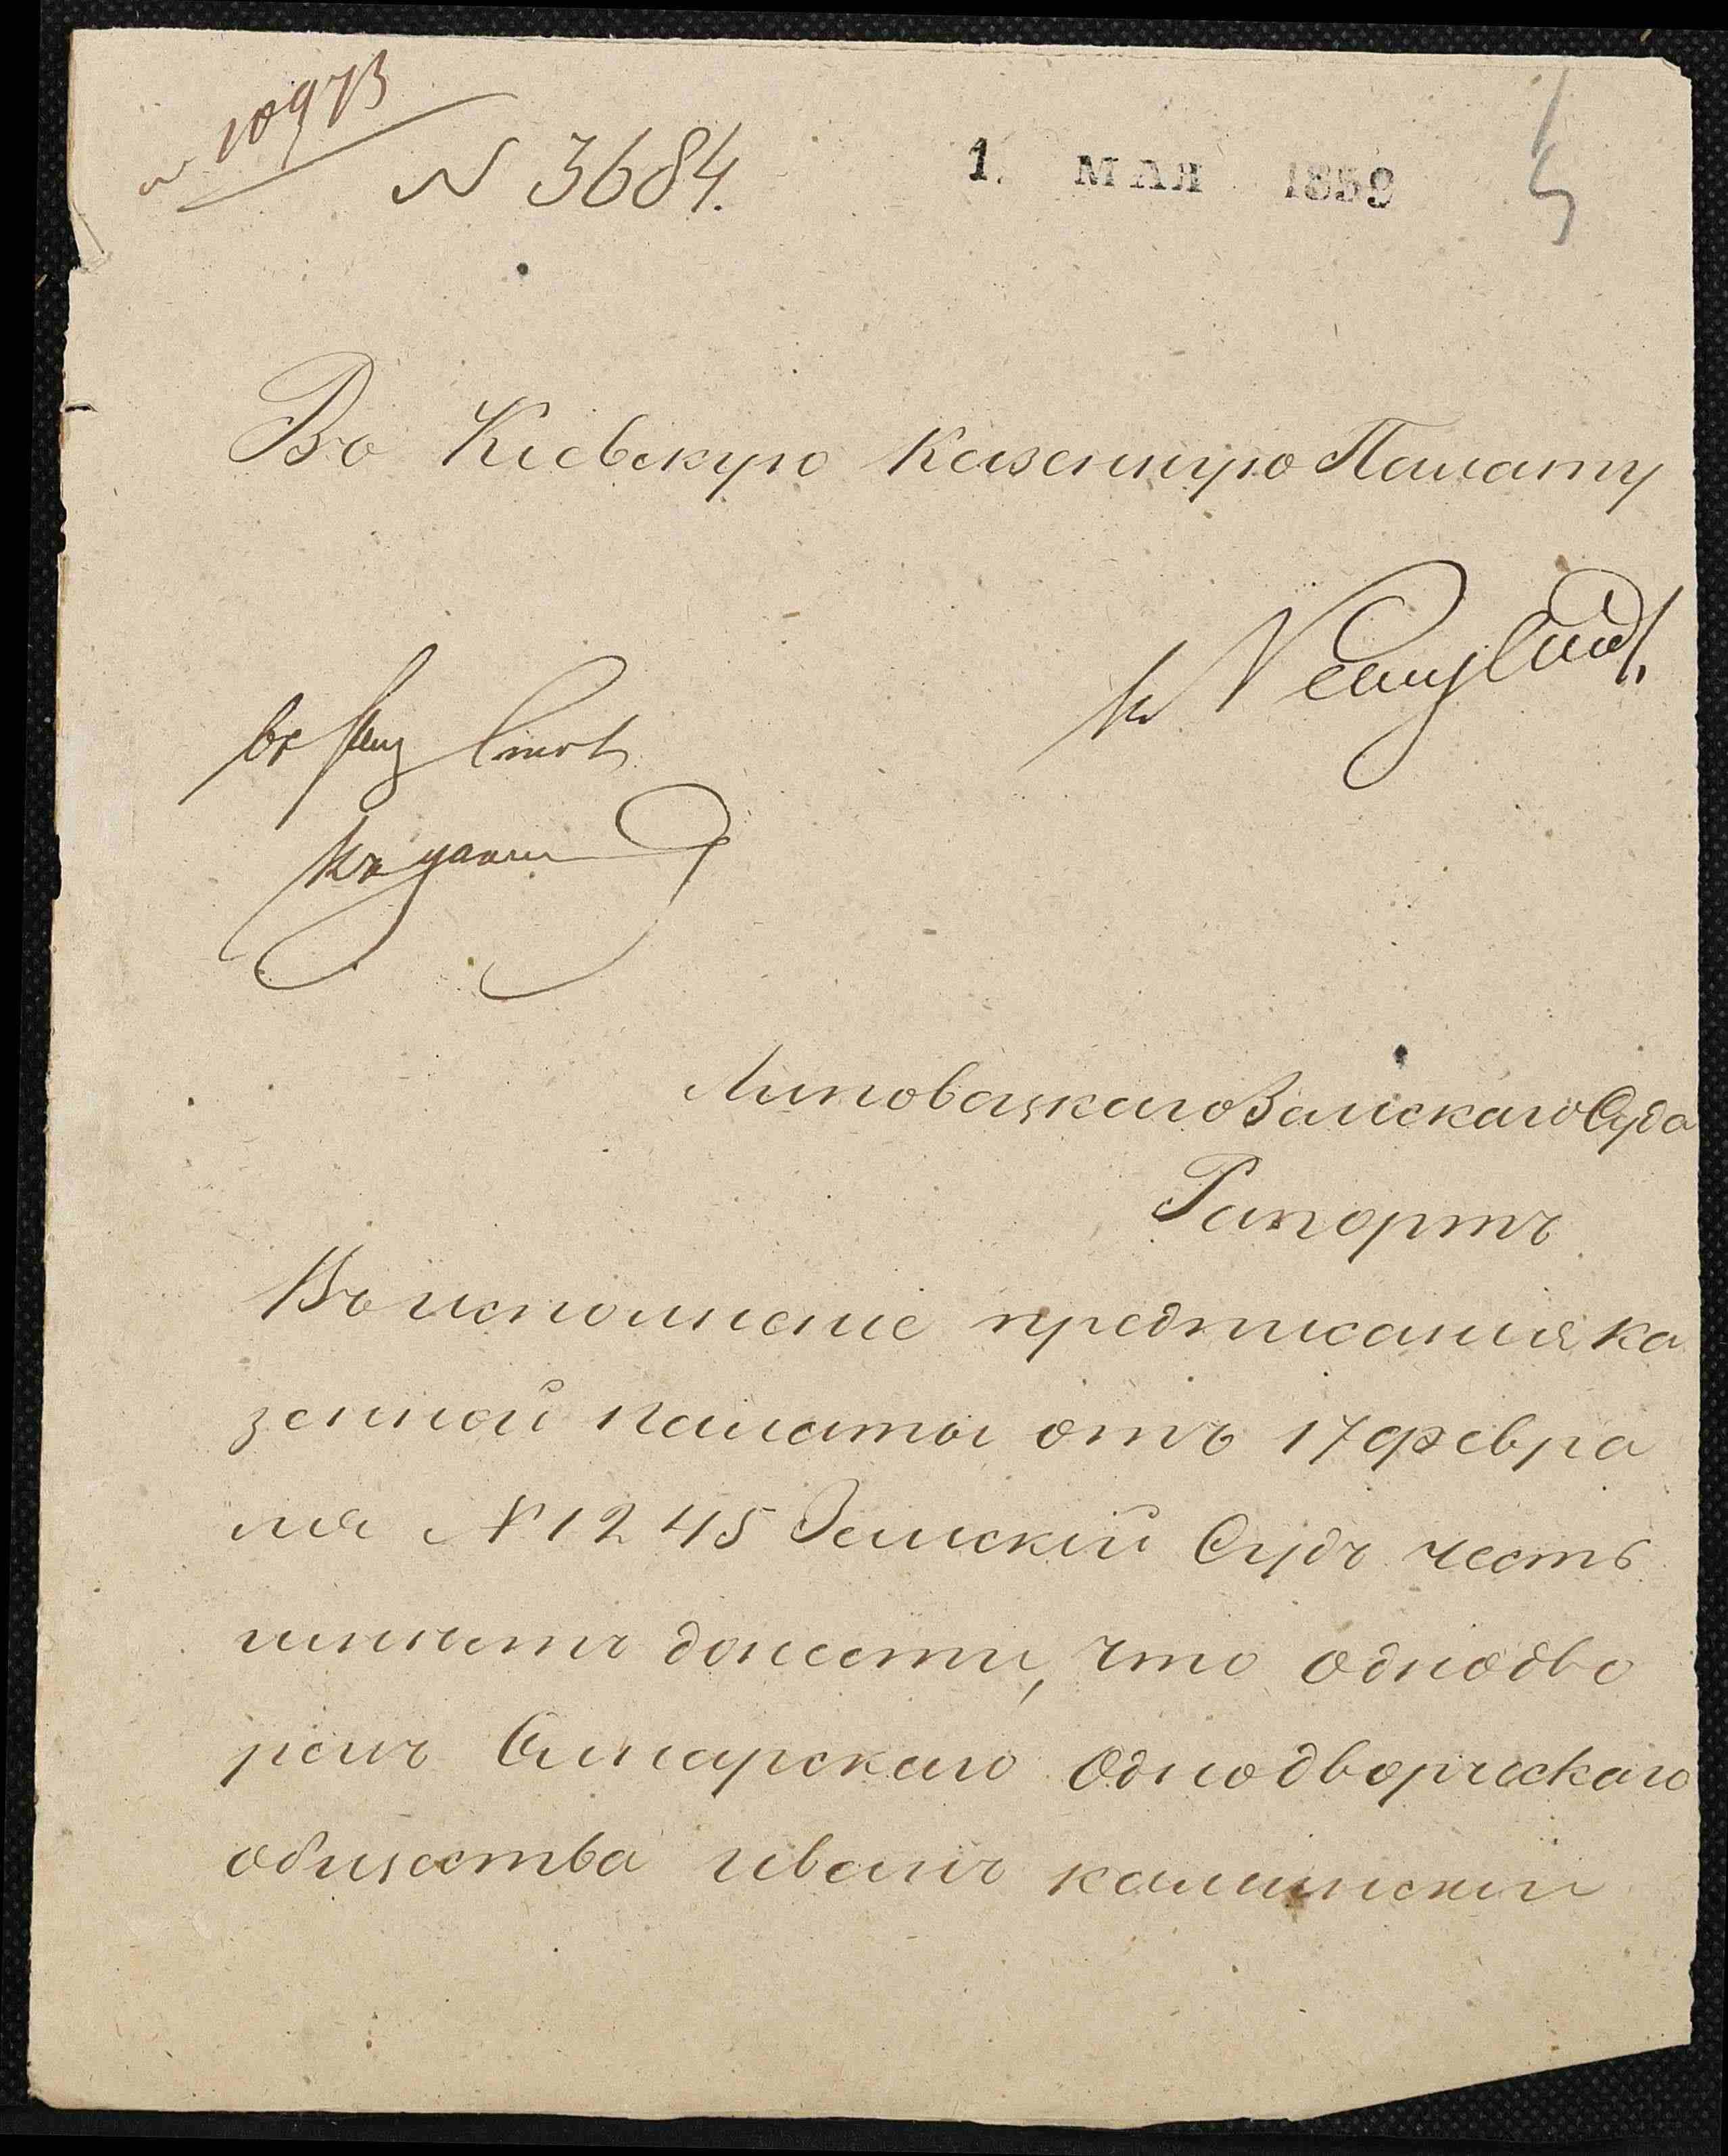 10973
N 3684.
1. МАЯ 1859
5
Въ Кіевскую Казенную Палату
Липовецкаго Земскаго Суда
Рапортъ
Въ исполненіе предписанія ка
зенной палаты отъ 17 февра
ля N 1245 Земскій Судъ честь
имѣетъ донести, что однодво
рецъ Самарскаго однодворческаго
общества иванъ калинскій